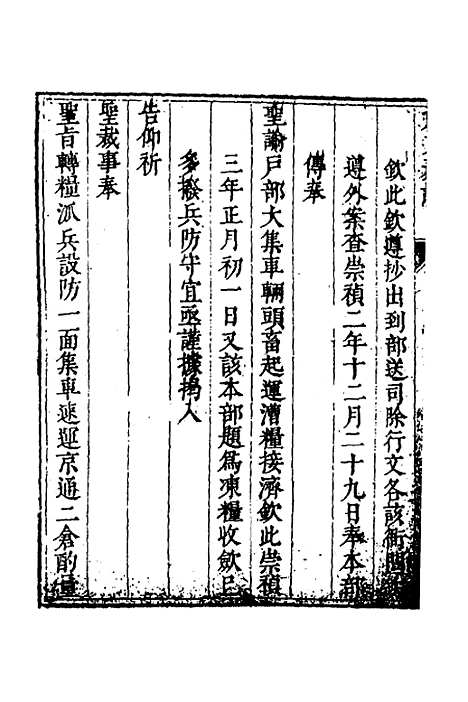 欽此欽遵抄出到部送司除行文各該衙
遵外案查崇禎二年十二月二十九日奉本部
傳奉
聖諭戶部大集車輛頭畜起運漕糧接濟欽此崇禎
三年正月初一日又該本部題爲凍糧收斂已
多撥兵防守宜亟謹據揭入
告仰祈
聖裁事奉
聖旨轉糧派兵設防一面集車速運京通二倉酌量